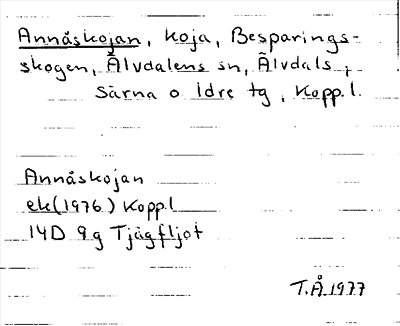 Annåskojan, koja, Besparings-
skogen, Älvdalens sn, Älvdals,
Särna o Idre tg, Kopp.l.
Annåskojan
ek(1976) Kopp.l
14D 9g Tjågfljot
T.Å.1977